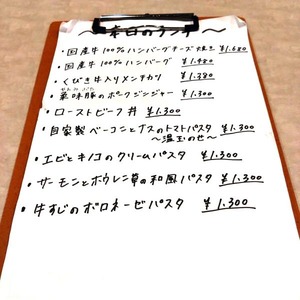 〜本日のランチ〜
・国産牛100%ハンバーグチーズ焼き ¥1.680
・国産牛100%ハンバーグ ¥1.480
・くびき牛入りメンチカツ ¥1.380
・薬味豚のポークジンジャー ¥1.300
・ローストビーフ丼 ¥1.300
・自家製ベーコンとナスのトマトパスタ ¥1.300
〜温玉のせ〜
・エビとキノコのクリームパスタ ¥1.300
・サーモンとホウレン草の和風パスタ ¥1.300
・牛すじのボロネーゼパスタ ¥1.300